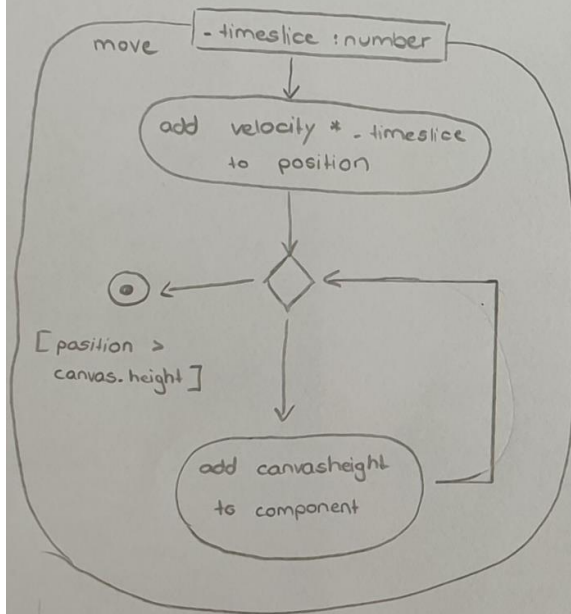 move
- timeslice : number
add velocity * - timeslice
to position
[ position >
canvas.height ]
add canvasheight
to component